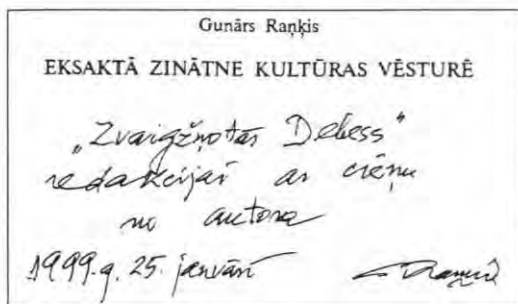 Gunārs Raņķis
EKSAKTĀ ZINĀTNE KULTŪRAS VĒSTURĒ
„Zvaigžņotās Debess"
redakcijai ar cieņu
no autora
1999.g. 25. janvārī